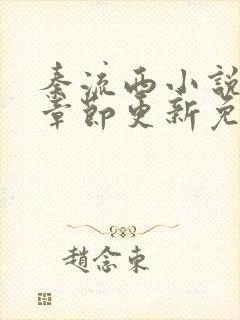 秦流西小說
章節更新免
趙念東